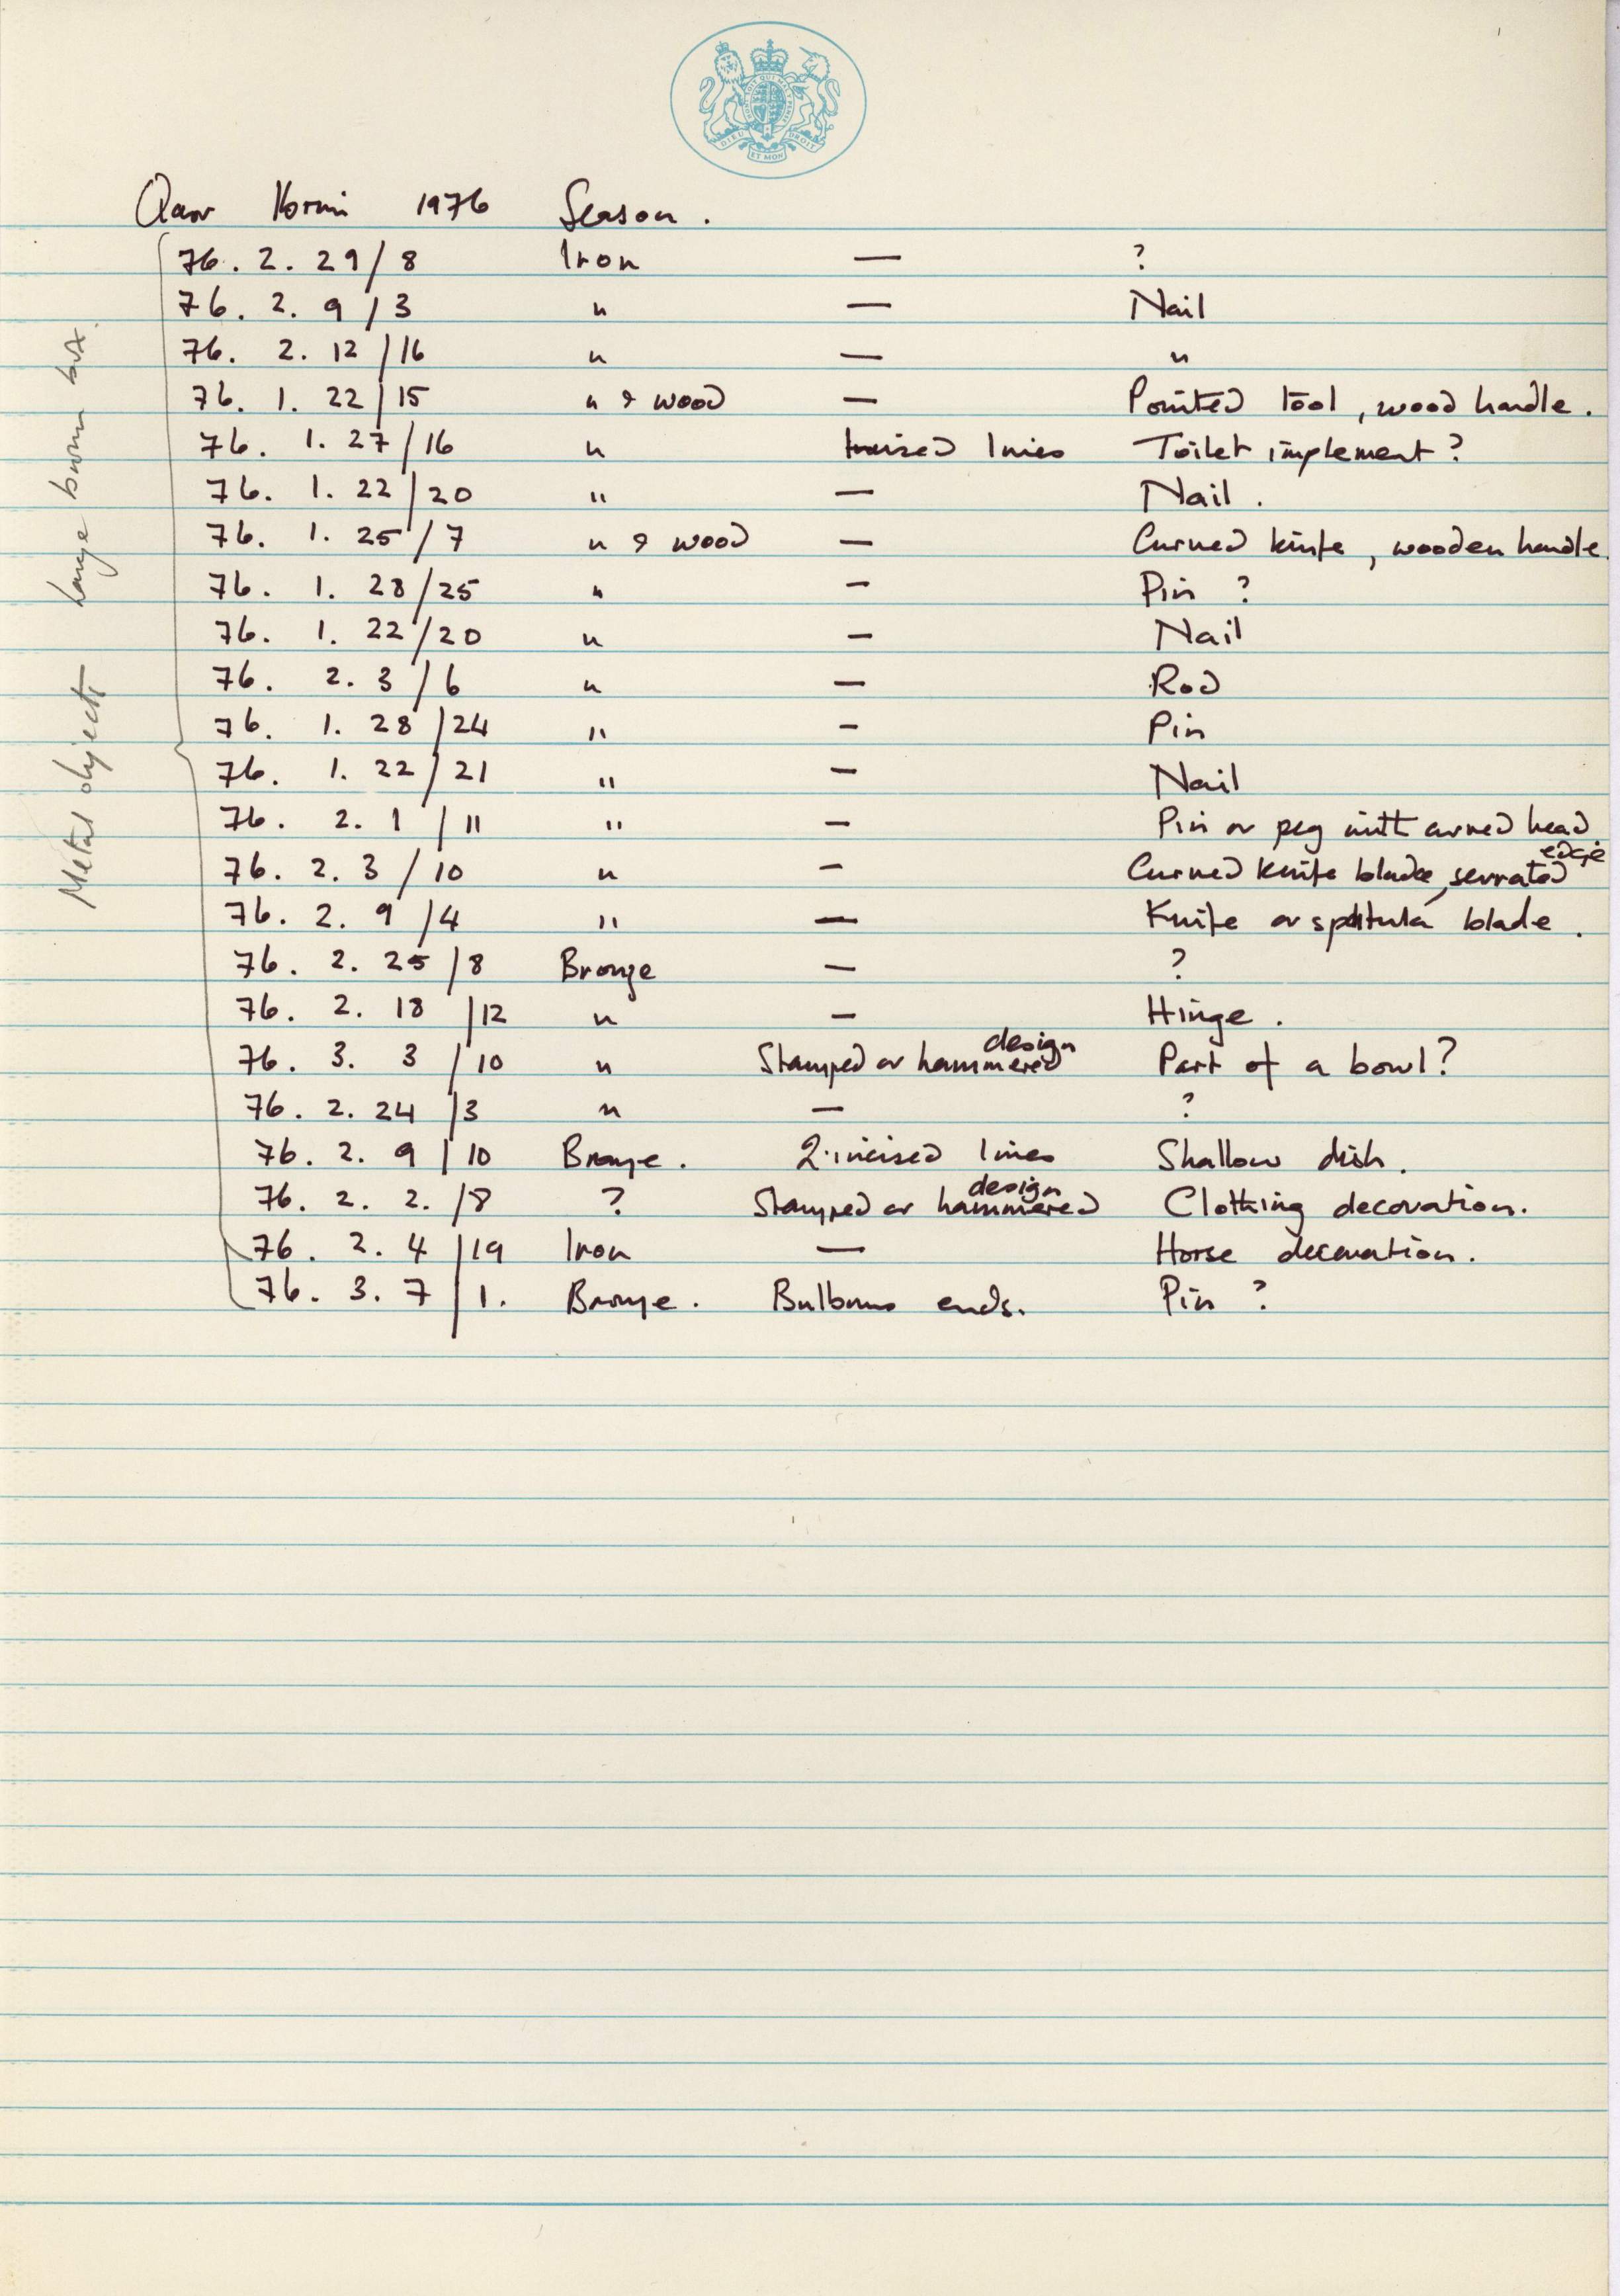 DIEU ET MON DROIT
Qasr Ibrim 1976 Season.
76. 2. 29/8 Iron — ?
76. 2. 9/3 " — Nail
76. 2. 12/16 " — "
76. 1. 22/15 " & wood — Pointed tool, wood handle.
76. 1. 27/16 " Incised lines Toilet implement?
76. 1. 22/20 " — Nail.
76. 1. 25/7 " & wood — Curved knife, wooden handle.
76. 1. 28/25 " — Pin ?
76. 1. 22/20 " — Nail
76. 2. 3/6 " — Rod
76. 1. 28/24 " — Pin
76. 1. 22/21 " — Nail
76. 2. 1/11 " — Pin or peg with curved head
76. 2. 3/10 " — Curved knife blade, serrated edge
76. 2. 9/4 " — Knife or spatula blade.
76. 2. 25/8 Bronze — ?
76. 2. 18/12 " — Hinge.
76. 3. 3/10 " Stamped or hammered design Part of a bowl?
76. 2. 24/3 " — ?
76. 2. 9/10 Bronze. 2 incised lines Shallow dish.
76. 2. 2./8 ? Stamped or hammered design Clothing decoration.
76. 2. 4/19 Iron — Horse decoration.
76. 3. 7/1. Bronze. Bulbous ends. Pin ?
Metal objects large brown box.